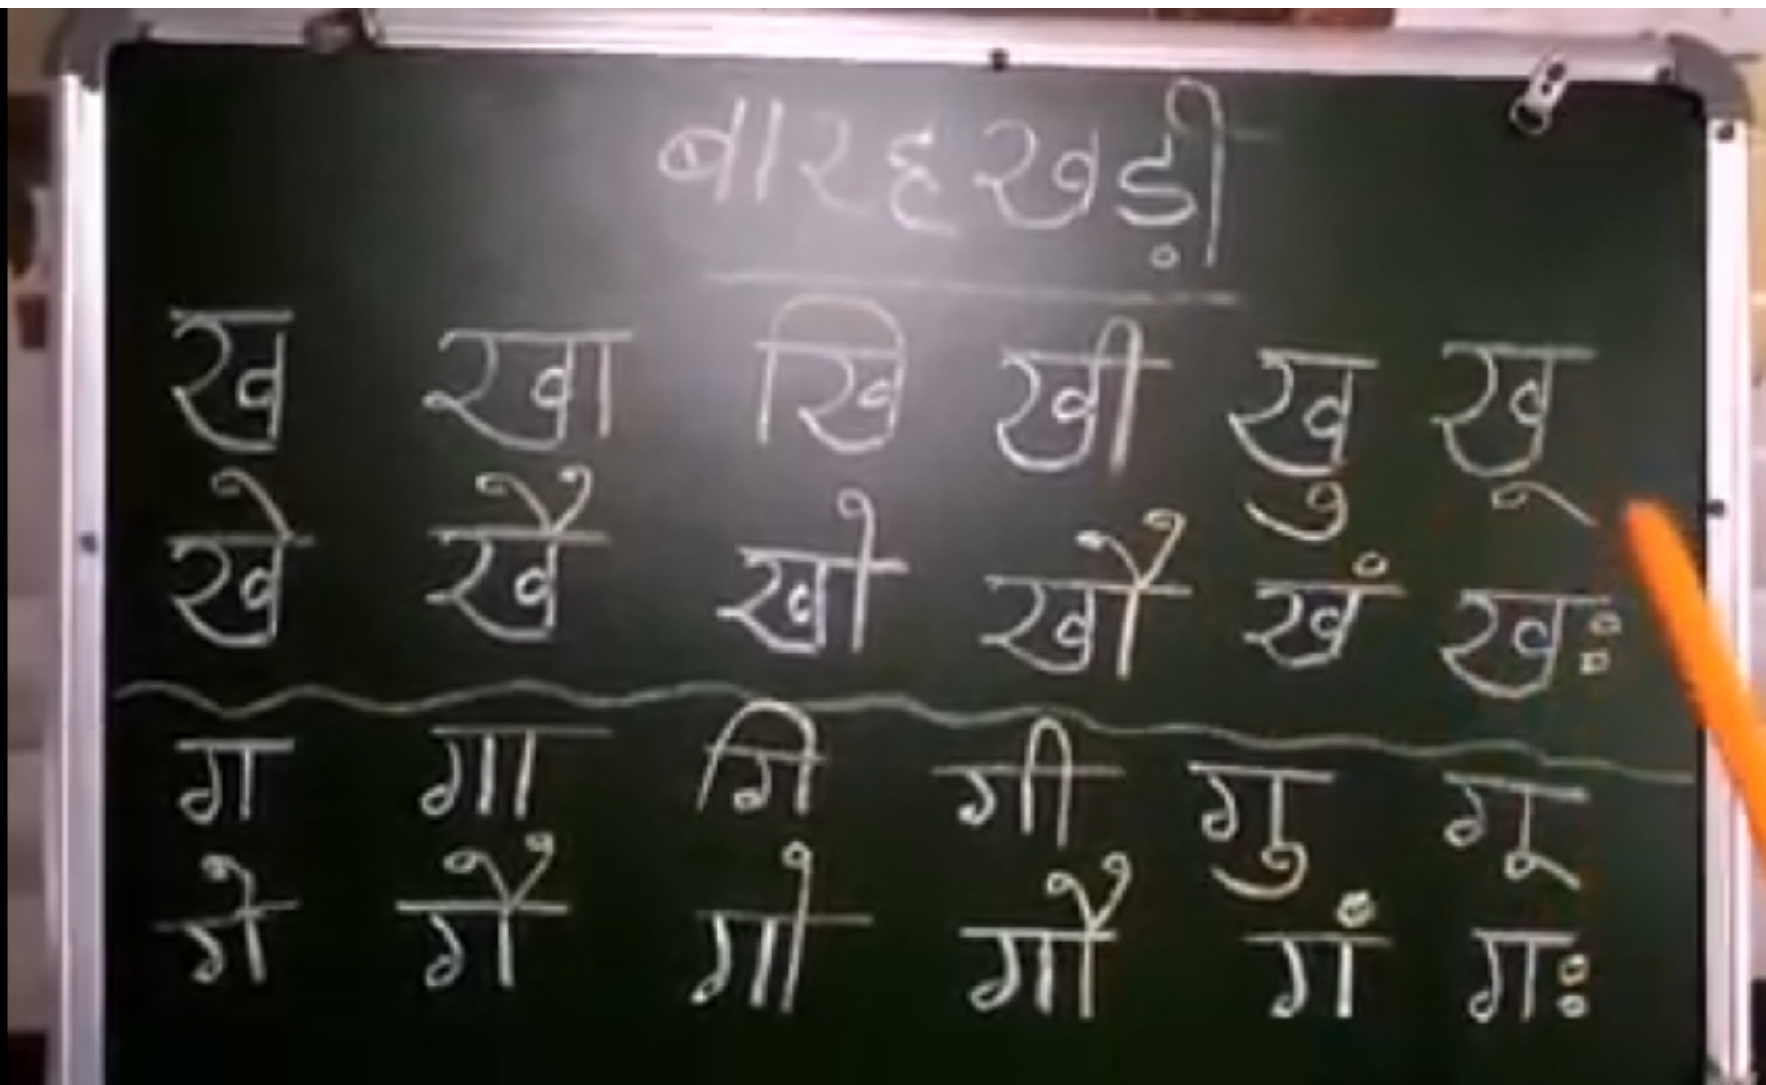 बारहखड़ी
ख खा खि खी खु खू
खे खै खो खौ खं खः
ग गा गि गी गु गू
गे गै गो गौ गं गः